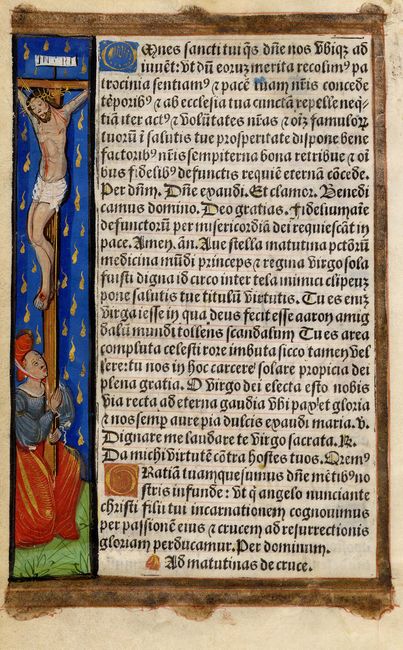 Omnes sancti tui q̄s dñe nos vbiqʒ ad
iuuēt: vt dū eoruʒ merita recolimꝰ pa
trocinia sentiamꝰ ⁊ pacē tuam nr̄is concede
tēporibꝰ ⁊ ab ecclesia tua cunctā repelle neq̄
tiā iter actꝰ ⁊ volūtates nr̄as ⁊ oīʒ famulorꝝ
tuorū ī salutis tue prosperitate dispone bene
factoribꝰ nr̄is sempiterna bona retribue ⁊ oī
bus fidelibꝰ defunctis requiē eternā cōcede.
Per dn̄m. Dñe exaudi. Et clamor. Benedi
camus domino. Deo gratias. Fideliumaīe
defunctorū per misericordiā dei requiescāt in
pace. Amen. añ. Aue stella matutina pctōrū
medicina mūdi princeps ⁊ regina virgo sola
fuisti digna id circo inter tela inimici clipeuʒ
pone salutis tue titulū virtutis. Tu es eniʒ
virga iesse in qua deus fecit esse aaron amig
dalū mundi tollens scandalum Tu es area
compluta celesti rore imbuta sicco tamen vel
lere tu nos in hoc carcere solare propicia dei
plena gratia. O virgo dei electa esto nobis
via recta ad eterna gaudia vbi pax et gloria
⁊ nos semꝑ aure pia dulcis exaudi maria. v.
Dignare me laudare te virgo sacrata. R.
Da michi virtutē cōtra hostes tuos. Oremꝰ
GRatiā tuamquesumus dñe mētibꝰ no
stris infunde: vt q̄ angelo nunciante
christi filii tui incarnationem cognouimus
per passionē eius ⁊ crucem ad resurrectionis
gloriam perducamur. Per dominum.
Ad matutinas de cruce.